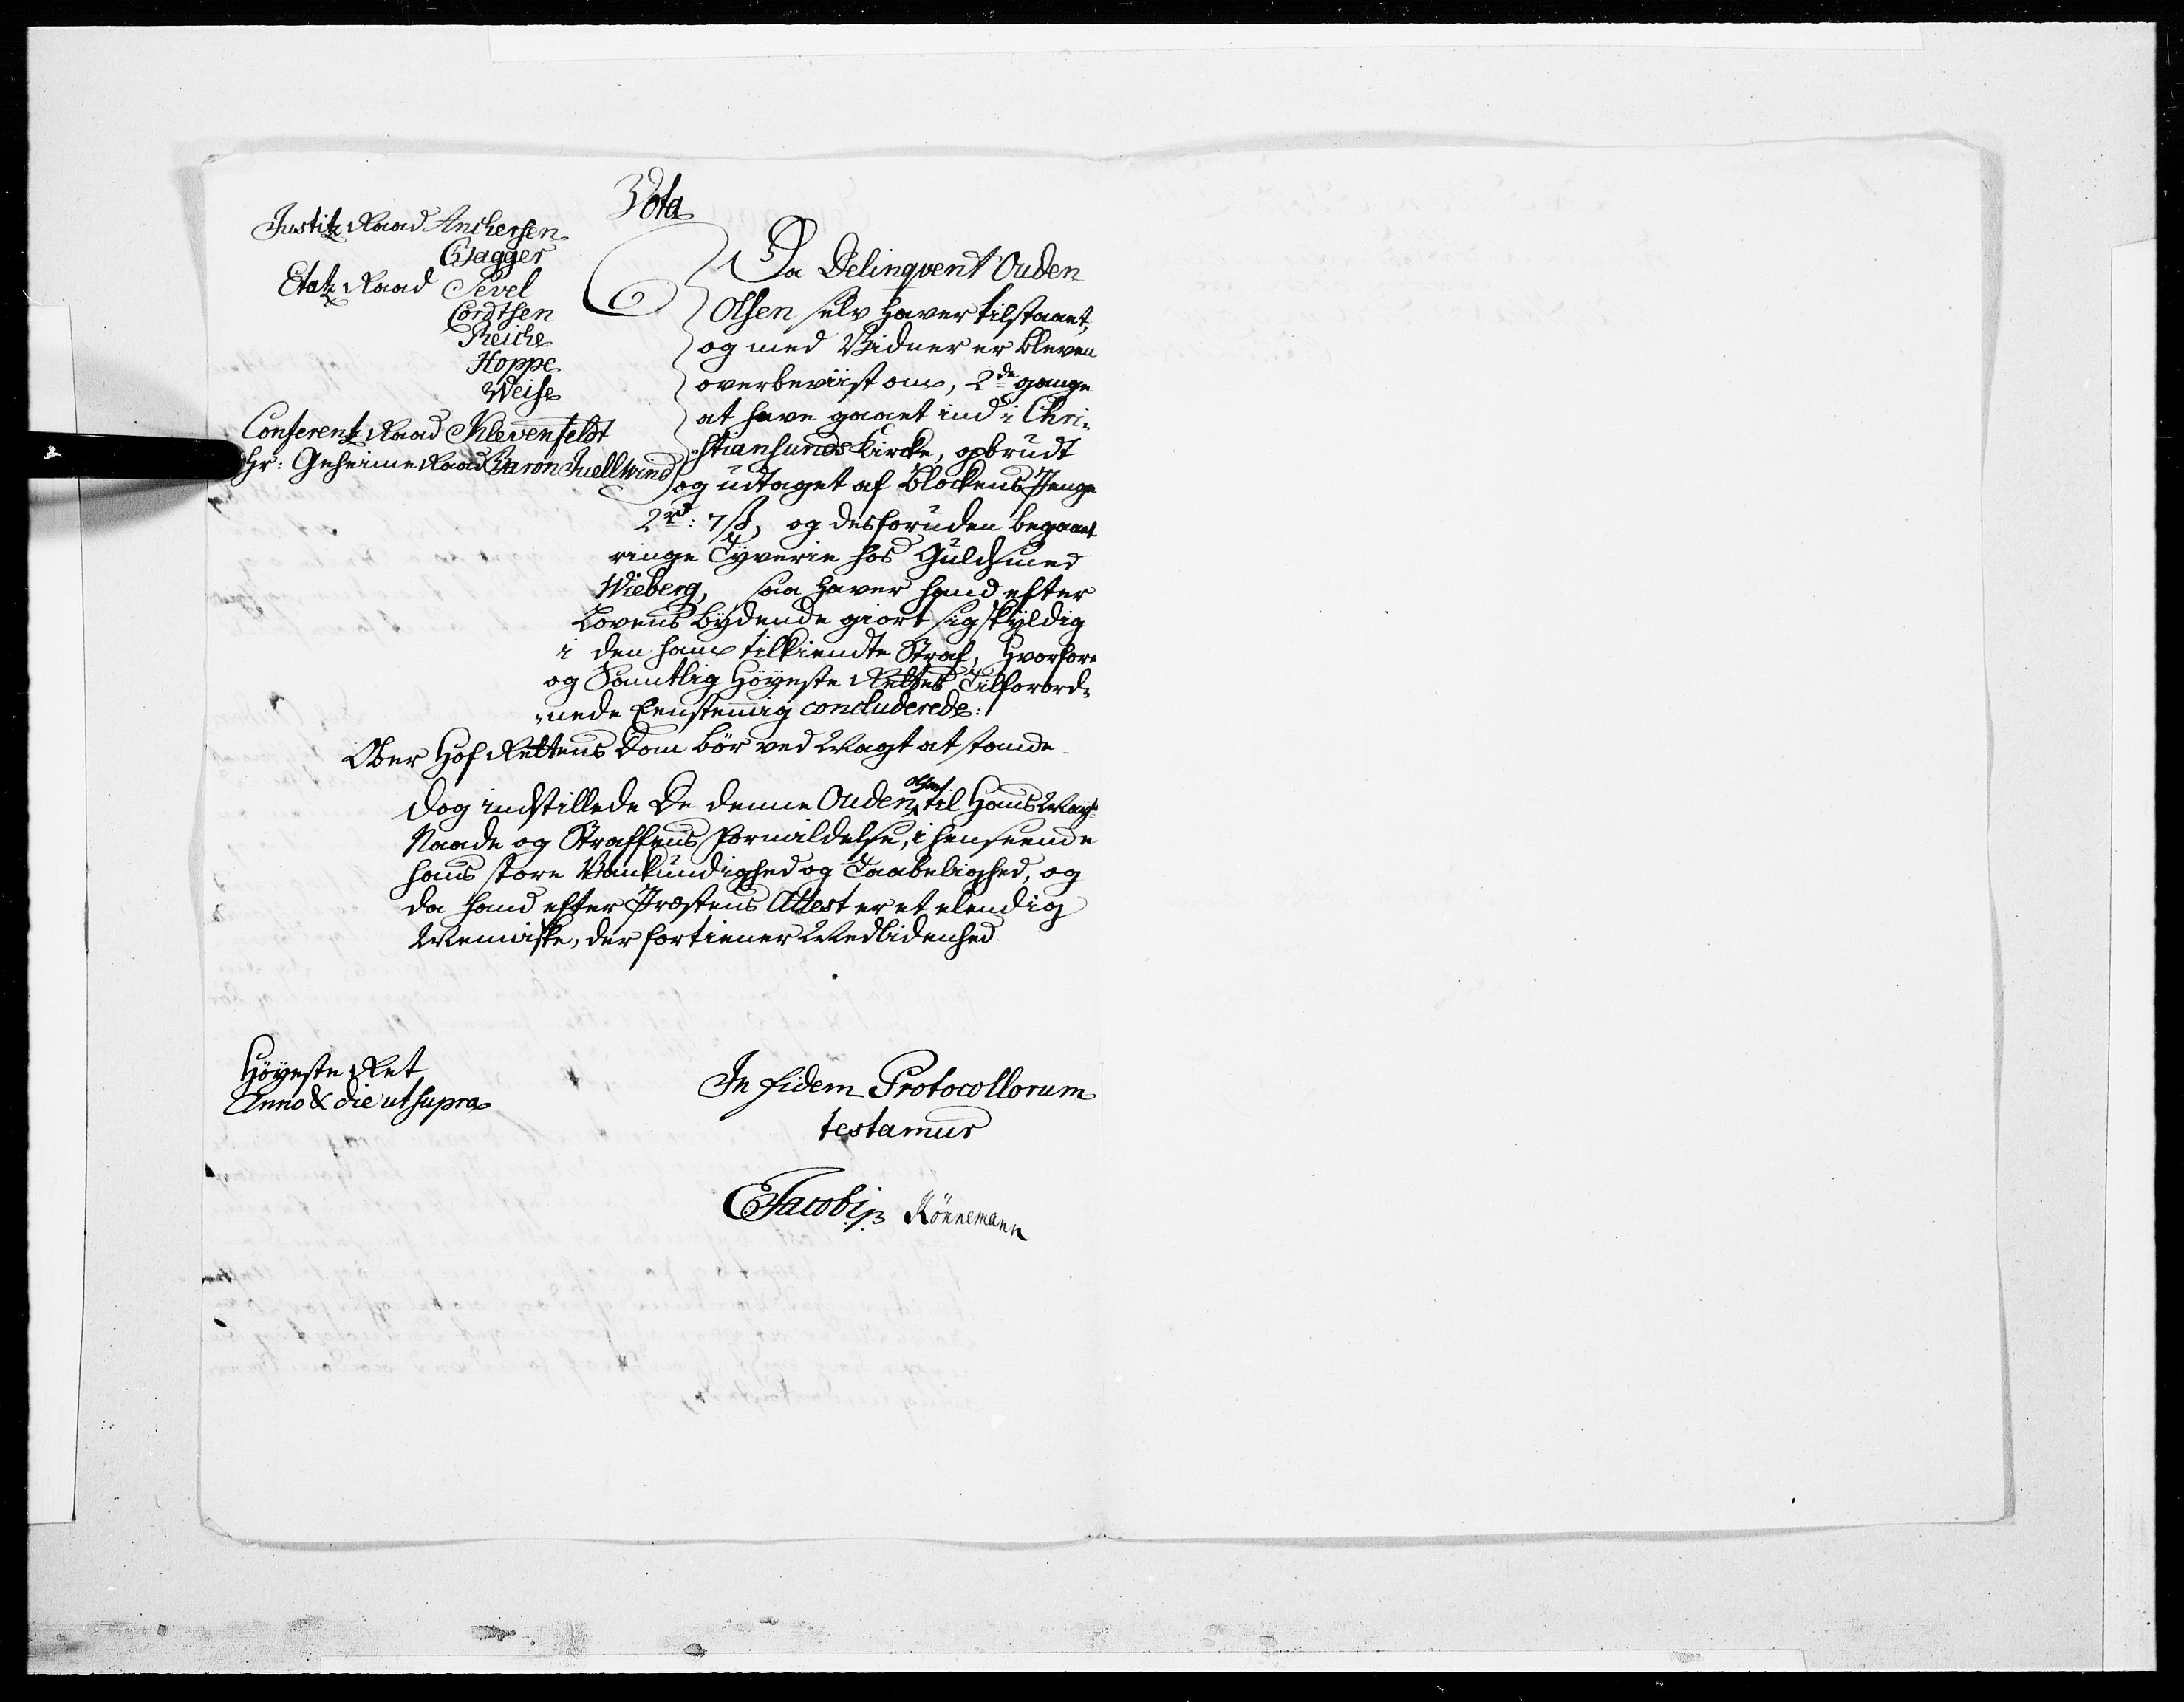 Vota
Justitz Raad Anchersen
Bagger
Etatz Raad Sevel
Cordtsen
Reiche
Hoppe
Weise
Conferentz Raad Klevenfeldt
Hr: Geheime Raad Baron Juell Wind
Da Delinqvent Ouden
Olsen selv haver tilstaaet,
og med Vidner er bleven
overbeviist om, 2de gange
at have gaaet ind i Chri-
stiansunds Kircke, opbrudt
og udtaget af Blockens Penge
2rd: 7 ß, og desforuden begaaet
ringe Tyverie hos Guldsmed
Wieberg, saa haver hand efter
Lovens bydende giort sig skyldig
i den ham tilkiendte Straf, Hvorfore
og Samtlig Höyeste Rettes Tilforord-
nede Eenstemig concluderede:
Ober Hof Rettens Dom bör ved Magt at stande
Dog indstillede De denne Ouden Olsen til Hans May:
Naade og Straffens Formildelse, i henseende
hans store Vankundighed og Taabelighed, og
da hand efter Præstens Attest er et elendig
Menniske, der fortiener Medlidenhed.
Höyeste Ret
Anno & die ut supra
In fidem Protocollorum
testamur
E Jacobi Rönnemann